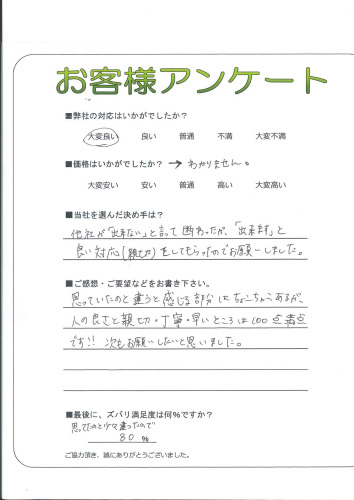 お客様アンケート
■弊社の対応はいかがでしたか？
大変良い 良い 普通 不満 大変不満
■価格はいかがでしたか？ → わかりません。
大変安い 安い 普通 高い 大変高い
■当社を選んだ決め手は？
他社が「出来ない」と言って断わったが、「出来ます」と
良い対応(親切)をしてもらったのでお願いしました。
■ご感想・ご要望などをお書き下さい。
思っていたのと違うと感じる部分はちょこちょこあるが、
人の良さと親切・丁寧・早いところは100点満点
です!! 次もお願いしたいと思いました。
■最後に、ズバリ満足度は何％ですか？
思ってたのと少々違ったので
80 ％
ご協力頂き、誠にありがとうございました。